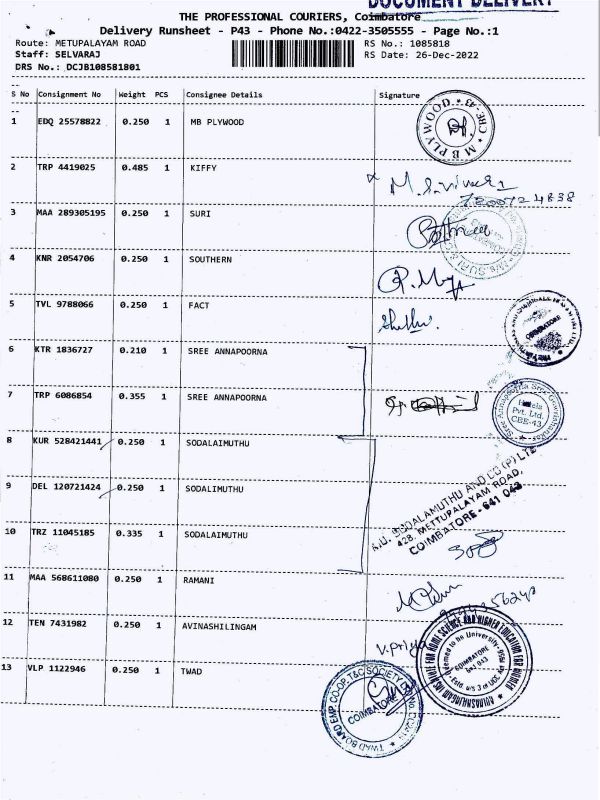 DOCUMENT DELIVERY
THE PROFESSIONAL COURIERS, Coimbatore
Delivery Runsheet - P43 - Phone No.:0422-3505555 - Page No.:1
Route: METUPALAYAM ROAD RS No.: 1085818
Staff: SELVARAJ RS Date: 26-Dec-2022
DRS No.: DCJB108581801
S No Consignment No Weight PCS Consignee Details Signature
1 EDQ 25578822 0.250 1 MB PLYWOOD
M B PLYWOOD * CBE-43 *
2 TRP 4419025 0.485 1 KIFFY
3 MAA 289305195 0.250 1 SURI
4 KNR 2054706 0.250 1 SOUTHERN
5 TVL 9788066 0.250 1 FACT
COIMBATORE
6 KTR 1836727 0.210 1 SREE ANNAPOORNA
7 TRP 6086854 0.355 1 SREE ANNAPOORNA
Sree Annapoorna Sree Gowrishankar
Hotels
Pvt. Ltd.
CBE-43
8 KUR 528421441 0.250 1 SODALAIMUTHU
9 DEL 120721424 0.250 1 SODALIMUTHU
10 TRZ 11045185 0.335 1 SODALAIMUTHU
A.U. SODALAMUTHU AND CO (P) LTD
428, METTUPALAYAM ROAD,
COIMBATORE - 641 043
11 MAA 568611080 0.250 1 RAMANI
12 TEN 7431982 0.250 1 AVINASHILINGAM
V. Priya
AVINASHILINGAM INSTITUTE FOR HOME SCIENCE AND HIGHER EDUCATION FOR WOMEN
COIMBATORE
641 043
13 VLP 1122946 0.250 1 TWAD
TWAD BOARD EMP. CO-OP. T&C SOCIETY
COIMBATORE